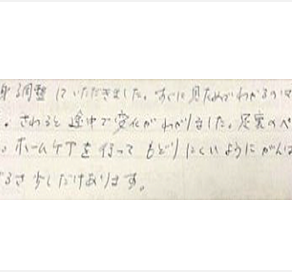 調整していただきました。すぐに見ためでわかるの
。さわると途中で変化がわかりました。足裏の
ホームケアを行って もどりにくいようにがん
さ 少しだけあります。